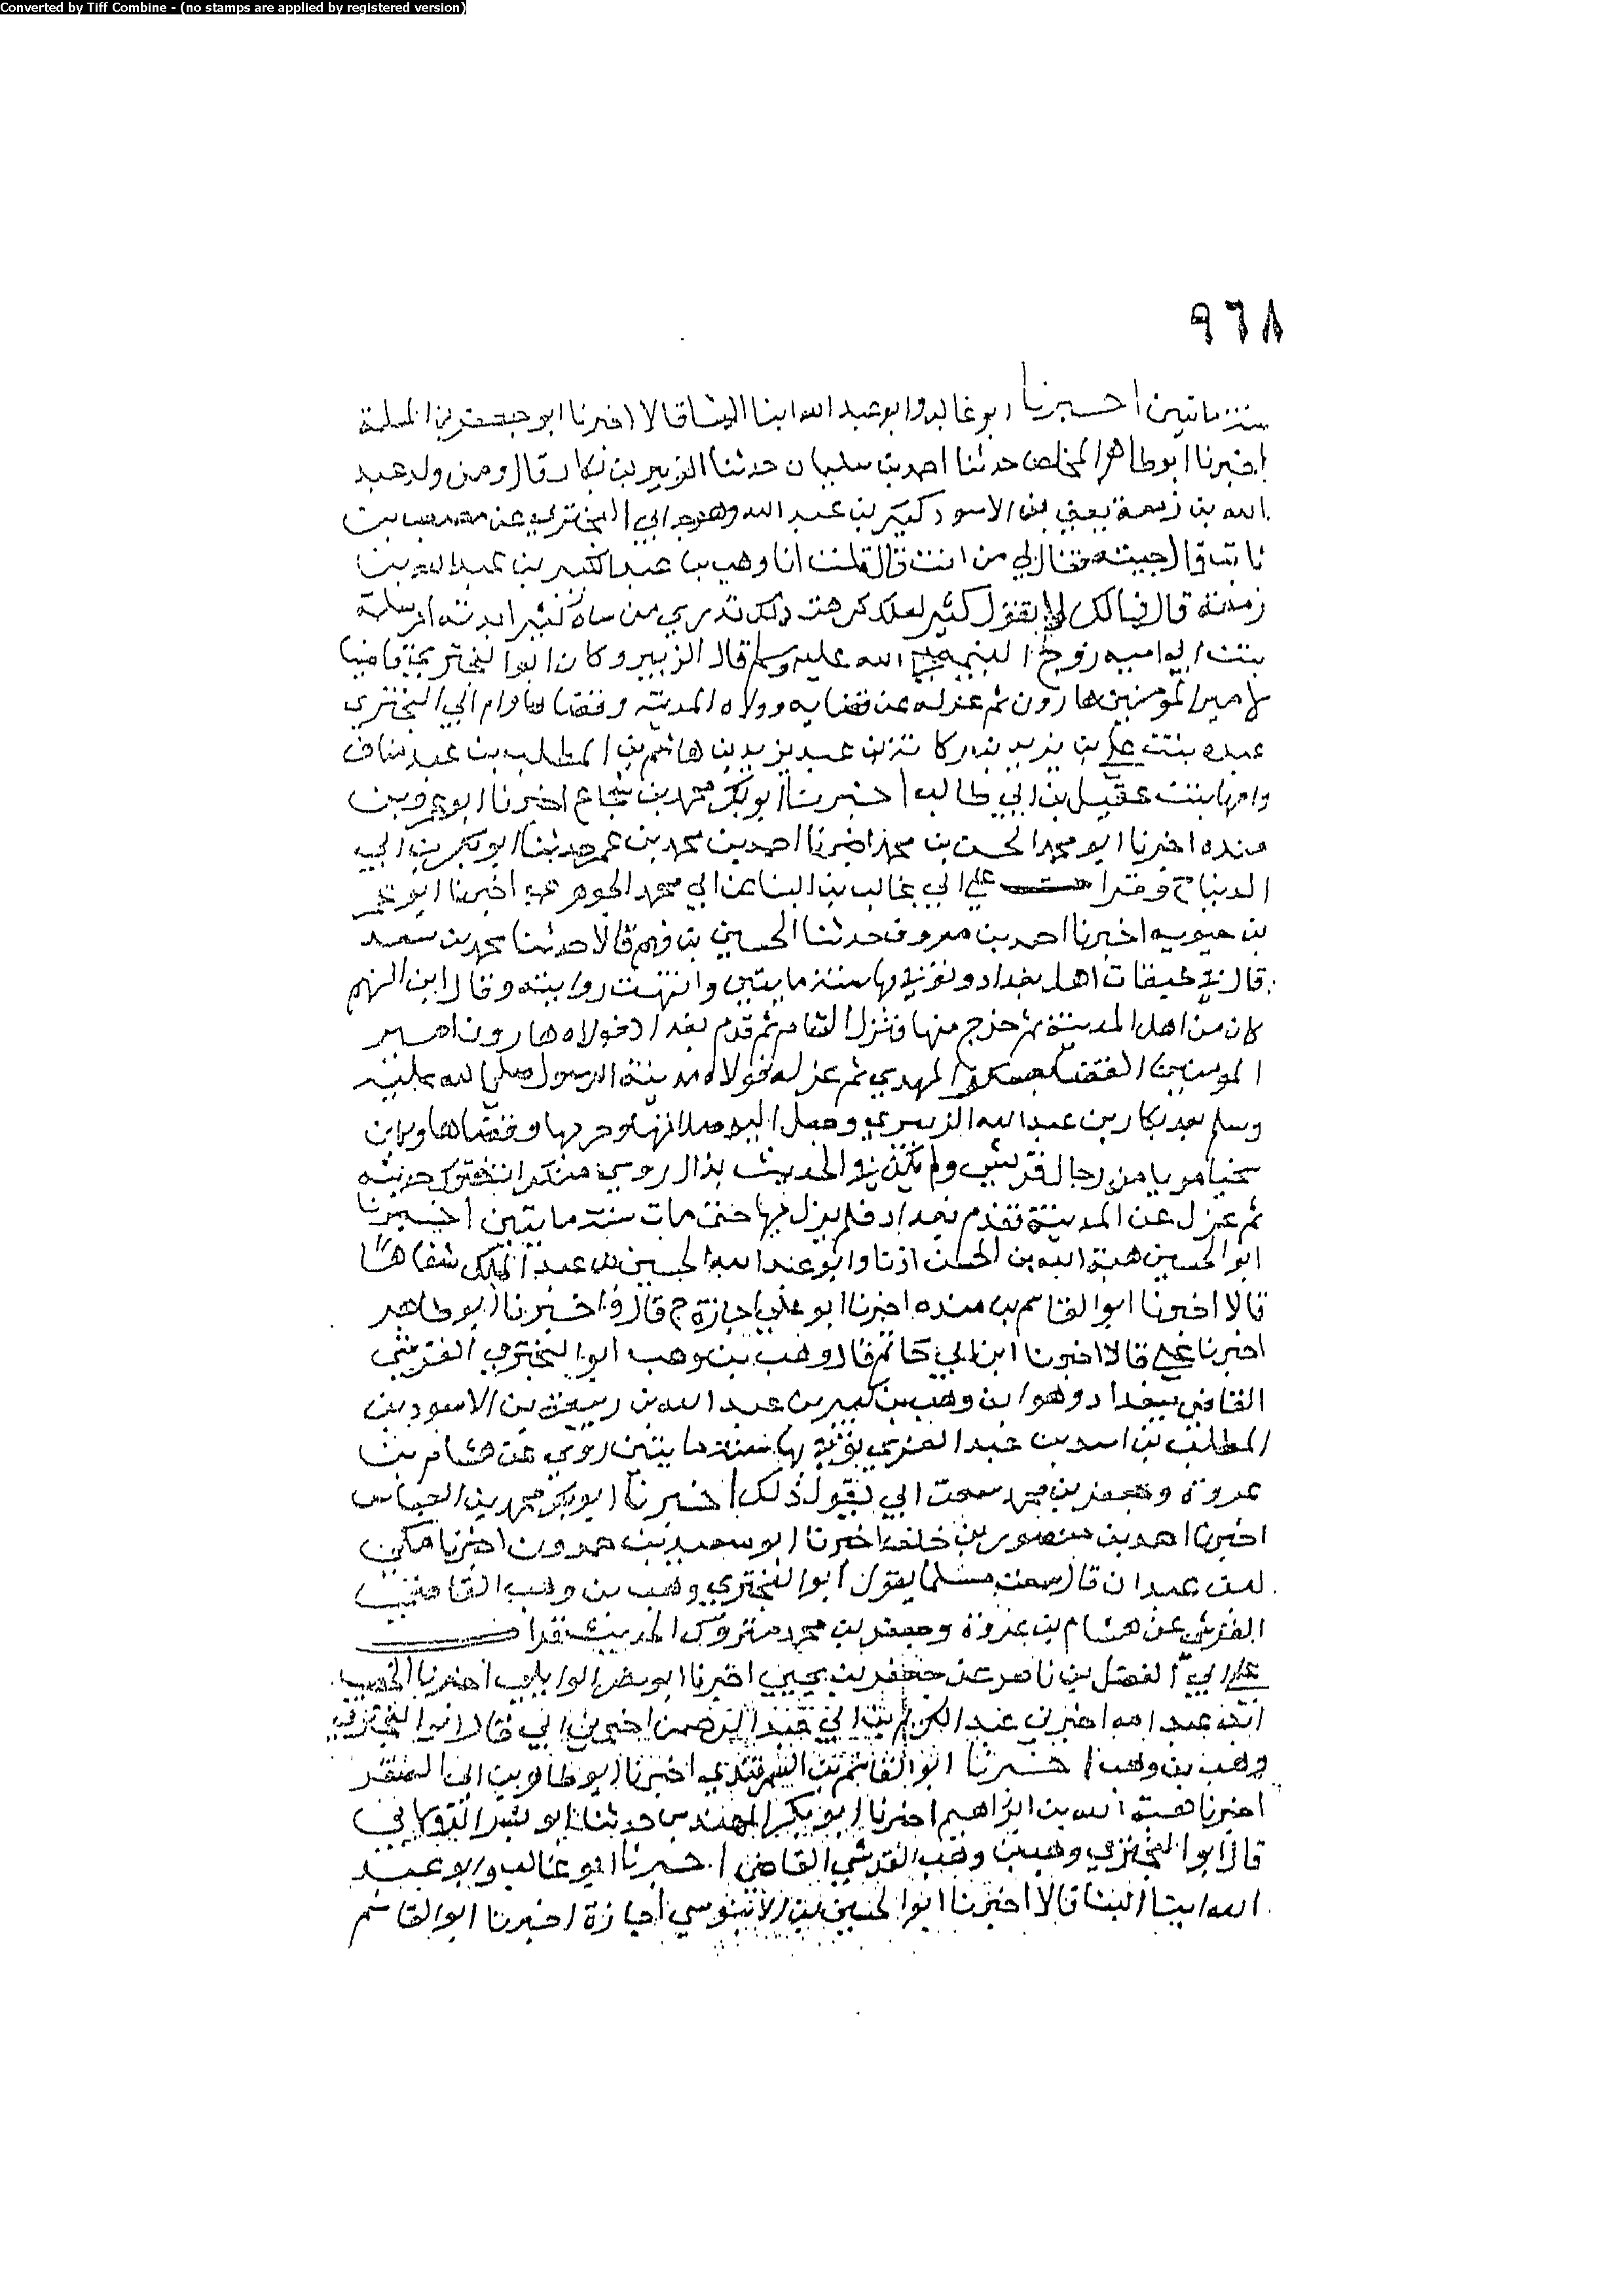 Converted by Tiff Combine - (no stamps are applied by registered version)
٩٦٨
سنة مائتين اخبرنا ابو غالب وابو عبد الله ابنا البنا قالا اخبرنا ابو جعفر بن المسلمة
اخبرنا ابو طاهر المخلص حدثنا احمد بن سليمان حدثنا الزبير بن بكار قال ومن ولد عبد
الله بن زمعة يعني بن الاسود كبير بن عبد الله وهو جد ابي البختري عن مصعب بن
ثابت قال جيته فقال لي من انت قال قلت انا وهب بن عبد الكبير بن عبد الله بن
زمعة قال فمالك لا تقول كثير لعلك كرهت ذلك تدري من سماه كثير ابنته ام سلمة
بنت ابي اميه زوج النبي صلى الله عليه وسلم قال الزبير وكان ابو البختري قاضيا
لامير المؤمنين هارون ثم عزله عن قضايه وولاه المدينة وقضاها وام ابي البختري
عبده بنت علي بن يزيد بن ركانة بن عبد يزيد بن هاشم بن المطلب بن عبد مناف
وامها بنت عقيل بن ابي طالب اخبرنا ابو بكر محمد بن شجاع اخبرنا ابو عمرو بن
منده اخبرنا ابو محمد الحسن بن محمد اخبرنا احمد بن محمد بن عمر حدثنا ابو بكر بن ابي
الدنيا ح وقرات علي ابي غالب بن البنا عن ابي محمد الجوهري اخبرنا ابو عمر
بن حيويه اخبرنا احمد بن معروف حدثنا الحسين بن فهم قالا حدثنا محمد بن سعد
قال في طبقات اهل بغداد وتوفي بها سنة مايتين وانتهت روايته وقال ابن الفهم
كان من اهل المدينة ثم خرج منها فنزل الشام ثم قدم بغداد فولاه هارون امير
المومنين القضا بعسكر المهدي ثم عزله فولاه مدينة الرسول صلى الله عليه
وسلم بعد بكار بن عبد الله الزبيري وجعل اليه صلاتها وحربها وقضاها وكان
سخيا سريا من رجال قريش ولم يكن في الحديث بذال روى منكرات فترك حديثه
ثم عزل عن المدينة فقدم بغداد فلم يزل بها حتى مات سنة مايتين اخبرنا
ابو الحسين هبة الله بن الحسن اذنا وابو عبد الله الحسين بن عبد الملك شفاها
قالا اخبرنا ابو القاسم بن منده اخبرنا ابو علي اجازة ح قال واخبرنا ابو طاهر
اخبرنا علي قالا اخبرنا ابن ابي حاتم قال وهب بن وهب ابو البختري القرشي
القاضي ببغداد وهو ابن وهب بن كبير بن عبد الله بن ربيعة بن الاسود بن
المطلب بن اسد بن عبد العزى توفي بها سنة مايتين روى عن هشام بن
عروة وجعفر بن محمد سمعت ابي يقول ذلك اخبرنا ابو بكر محمد بن العباس
اخبرنا احمد بن منصور بن خلف اخبرنا ابو سعيد بن حمدون اخبرنا مكي
بن عبدان قال سمعت مسلما يقول ابو البختري وهب بن وهب القاضي
القرشي عن هشام بن عروة وجعفر بن محمد متروك الحديث قرات
علي ابي الفضل بن ناصر عن جعفر بن يحيى اخبرنا ابو نصر الوايلي اخبرنا الخصيب
بن عبد الله اخبرني عبد الكريم بن ابي عبد الرحمن اخبرني ابي قال ابو البختري
وهب بن وهب اخبرنا ابو القاسم بن السمرقندي اخبرنا ابو طاهر بن ابي الصقر
اخبرنا هبة الله بن ابراهيم اخبرنا ابو بكر المهندس حدثنا ابو بشر الدولابي
قال ابو البختري وهب بن وهب القرشي القاضي اخبرنا ابو غالب وابو عبد
الله ابنا البنا قالا اخبرنا ابو الحسين بن الابنوسي اجازة اخبرنا ابو القاسم